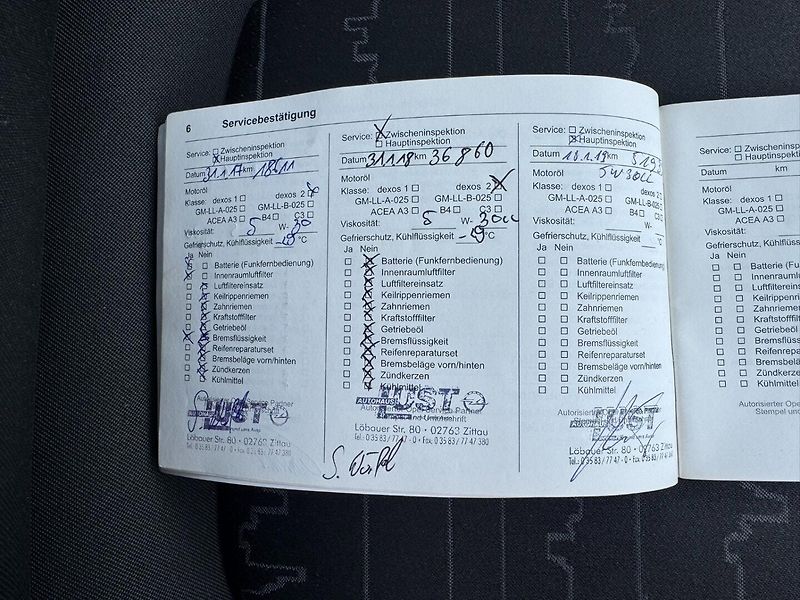 6 Servicebestätigung
Service: Zwischeninspektion
Hauptinspektion
Datum 31.1.17 km 18611
Motoröl
Klasse: dexos 1 dexos 2
GM-LL-A-025 GM-LL-B-025
ACEA A3 B4 C3
Viskosität: 5 W- 30
Gefrierschutz, Kühlflüssigkeit °C
Ja Nein
Batterie (Funkfernbedienung)
Innenraumluftfilter
Luftfiltereinsatz
Keilrippenriemen
Zahnriemen
Kraftstofffilter
Getriebeöl
Bremsflüssigkeit
Reifenreparaturset
Bremsbeläge vorn/hinten
Zündkerzen
Kühlmittel
AUTOHAUS JUST
Löbauer Str. 80 • 02763 Zittau
Tel.: 0 35 83 / 77 47 - 0 • Fax: 0 35 83 / 77 47 380
Service: Zwischeninspektion
Hauptinspektion
Datum 31.1.18 km 36860
Motoröl
Klasse: dexos 1 dexos 2
GM-LL-A-025 GM-LL-B-025
ACEA A3 B4 C3
Viskosität: 5 W- 30
Gefrierschutz, Kühlflüssigkeit °C
Ja Nein
Batterie (Funkfernbedienung)
Innenraumluftfilter
Luftfiltereinsatz
Keilrippenriemen
Zahnriemen
Kraftstofffilter
Getriebeöl
Bremsflüssigkeit
Reifenreparaturset
Bremsbeläge vorn/hinten
Zündkerzen
Kühlmittel
AUTOHAUS JUST
Löbauer Str. 80 • 02763 Zittau
Tel.: 0 35 83 / 77 47 - 0 • Fax: 0 35 83 / 77 47 380
Service: Zwischeninspektion
Hauptinspektion
Datum 10.1.19 km
Motoröl 5W30LL
Klasse: dexos 1 dexos 2
GM-LL-A-025 GM-LL-B-025
ACEA A3 B4 C3
Viskosität: W-
Gefrierschutz, Kühlflüssigkeit °C
Ja Nein
Batterie (Funkfernbedienung)
Innenraumluftfilter
Luftfiltereinsatz
Keilrippenriemen
Zahnriemen
Kraftstofffilter
Getriebeöl
Bremsflüssigkeit
Reifenreparaturset
Bremsbeläge vorn/hinten
Zündkerzen
Kühlmittel
AUTOHAUS JUST
Löbauer Str. 80 • 02763 Zittau
Tel.: 0 35 83 / 77 47 - 0 • Fax: 0 35 83 / 77 47 380
Service: Zwischeninspektion
Hauptinspektion
Datum km
Motoröl
Klasse: dexos 1
GM-LL-A-025
ACEA A3
Viskosität:
Gefrierschutz, Kühlflüssigkeit
Ja Nein
Batterie (Funkfern
Innenraumluftfilter
Luftfiltereinsatz
Keilrippenriemen
Zahnriemen
Kraftstofffilter
Getriebeöl
Bremsflüssigkeit
Reifenreparaturset
Bremsbeläge vorn
Zündkerzen
Kühlmittel
Autorisierter Ope
Stempel und